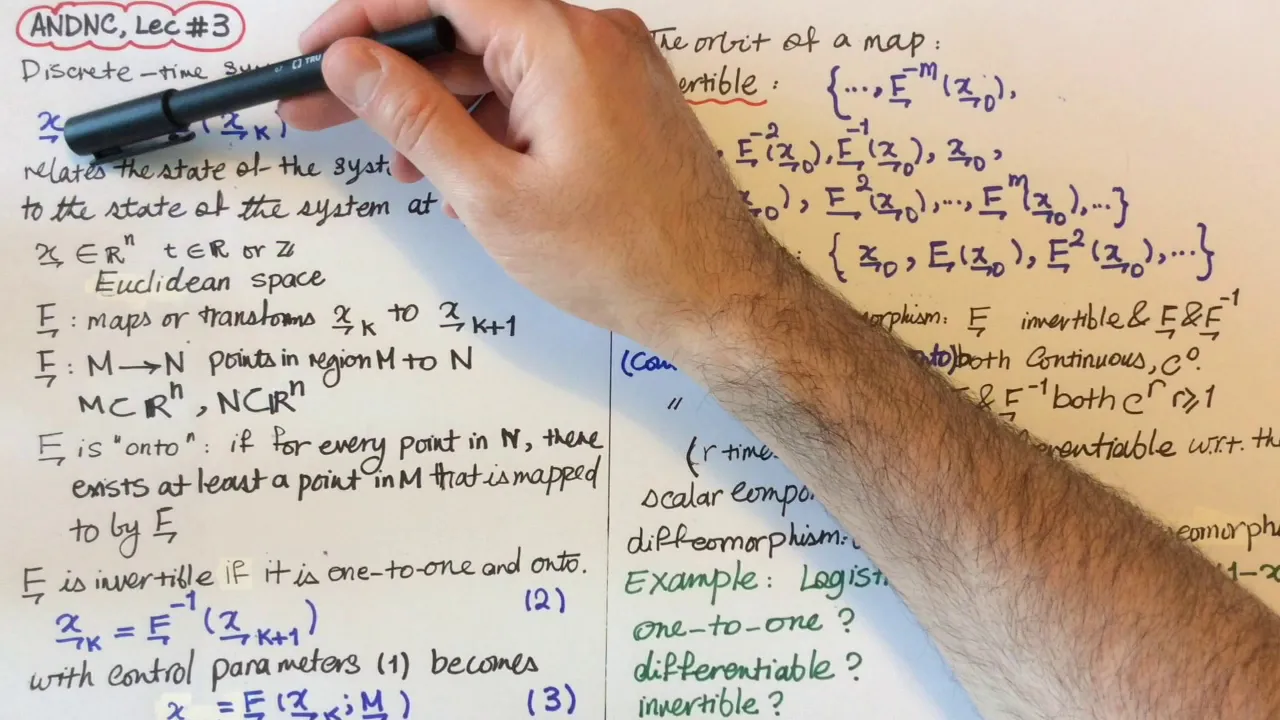 ANDNC, Lec #3
Discrete-time
x (x_K)
relates the state of the
to the state of the system at
x ∈ ℝⁿ t ∈ ℝ or ℤ
Euclidean space
F : maps or transforms x_K to x_K+1
F : M → N points in region M to N
M ⊂ ℝⁿ, N ⊂ ℝⁿ
F is "onto": if for every point in N, there
exists at least a point in M that is mapped
to by F
F is invertible if it is one-to-one and onto.
x_K = F⁻¹(x_K+1) (2)
with control parameters (1) becomes
x = F(x_K; M) (3)
The orbit of a map:
: {..., F^-m(x_0),
F⁻²(x_0), F⁻¹(x_0), x_0,
, F²(x_0), ..., F^m(x_0), ...}
: {x_0, F(x_0), F²(x_0), ...}
F invertible & F & F⁻¹
both continuous, C⁰.
" & F⁻¹ both C^r r⩾1
(r w.r.t. the
scalar
diffeomorphism:
Example:
one-to-one ?
differentiable ?
invertible ?